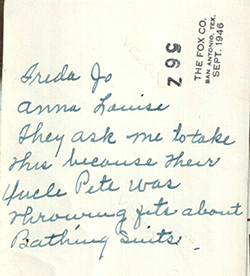 Freda Jo
Anna Louise
They ask me to take
this because their
Uncle Pete was
throwing fits about
Bathing Suits.
562
THE FOX CO.
SAN ANTONIO, TEX.
SEPT. 1946